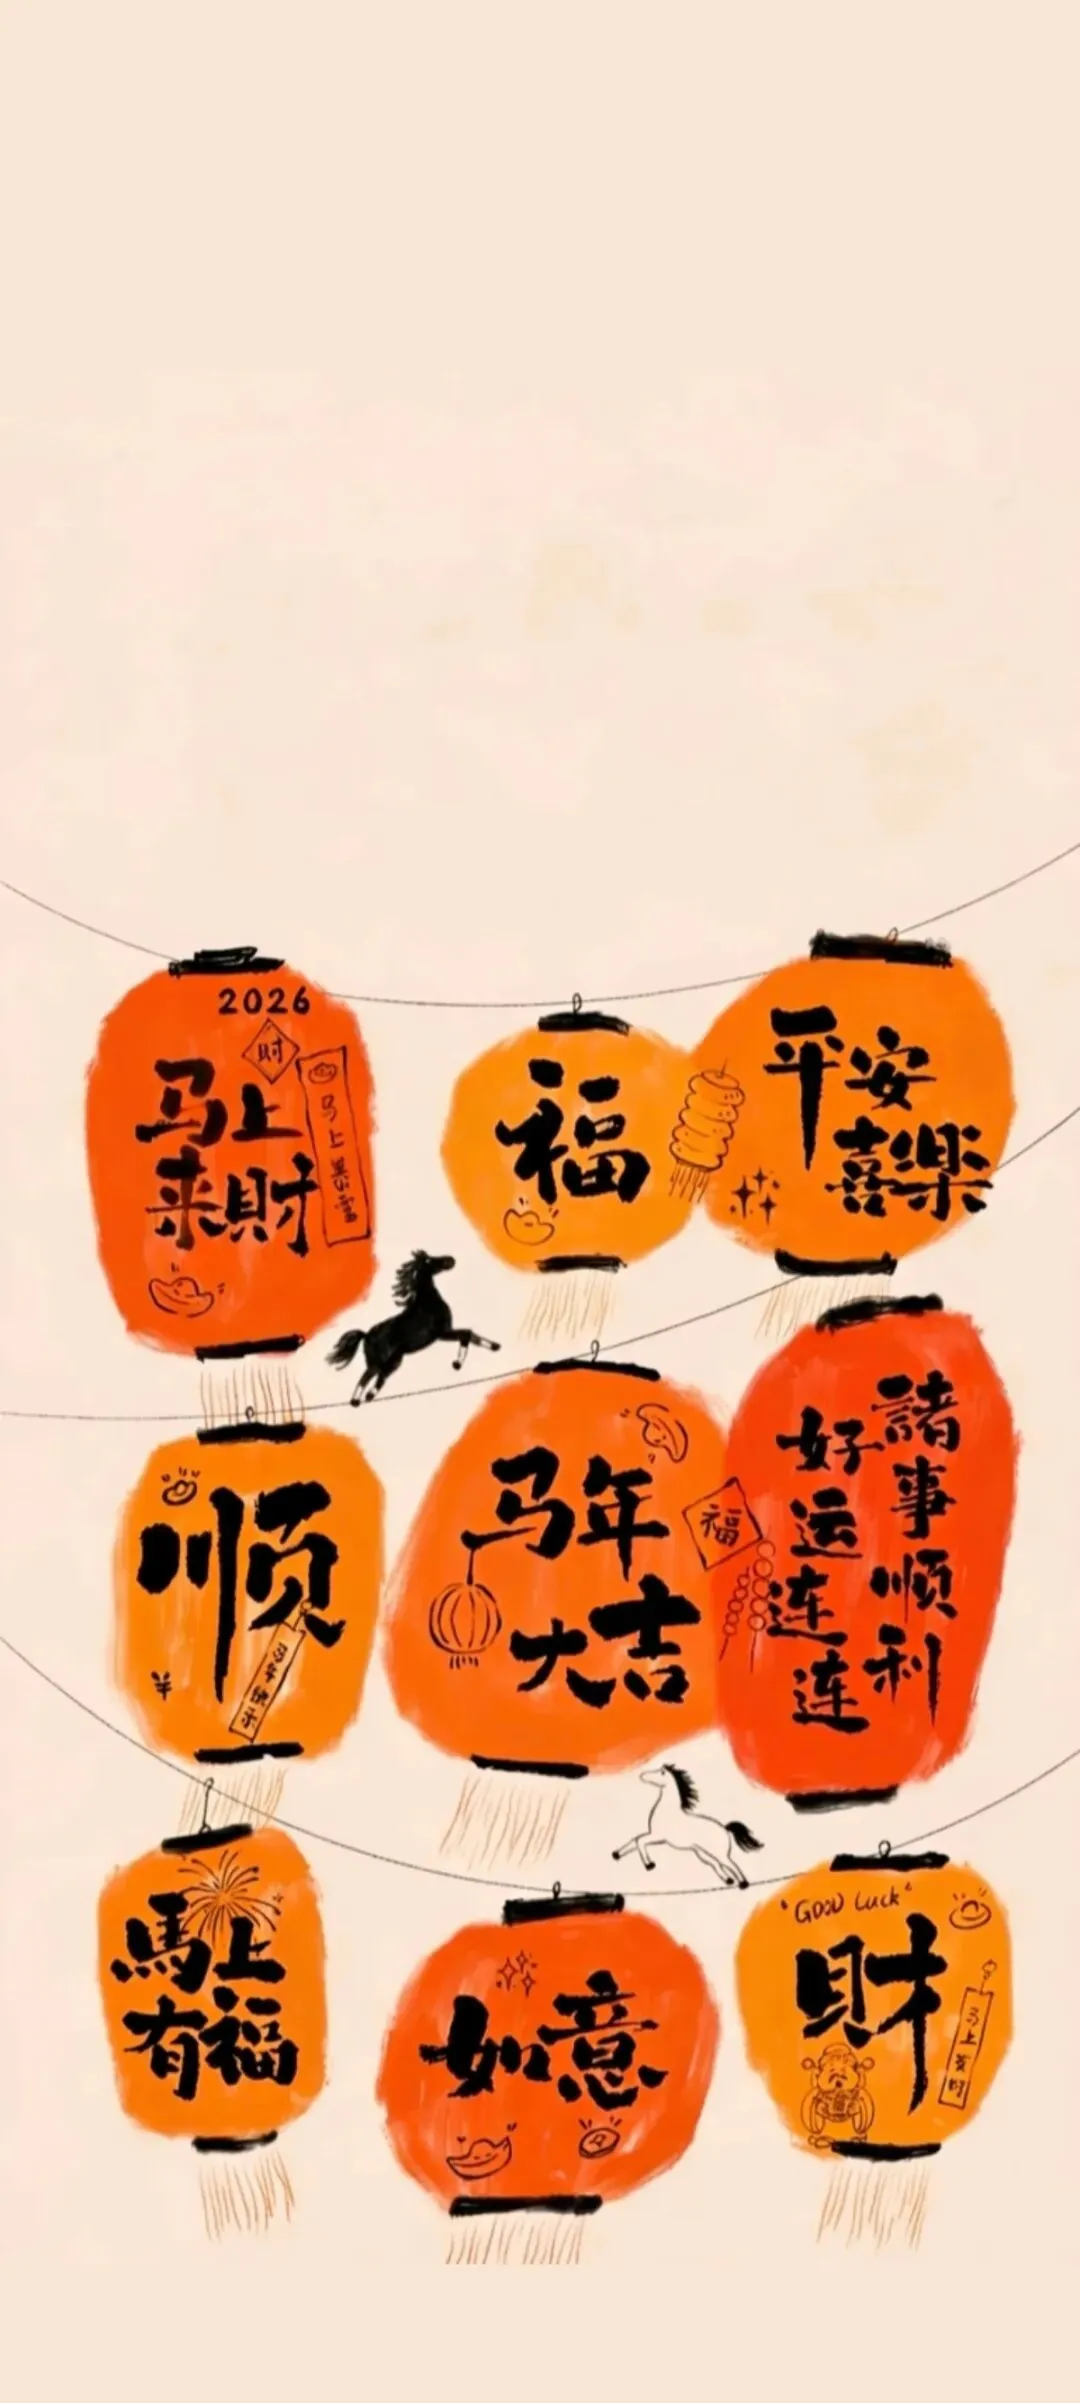 2026
财
马上
来財
福
平安
喜樂
顺
马年
大吉
福
諸事顺利
好运连连
馬上
有福
如意
"GOOD Luck"
財
马上发财
马年快乐